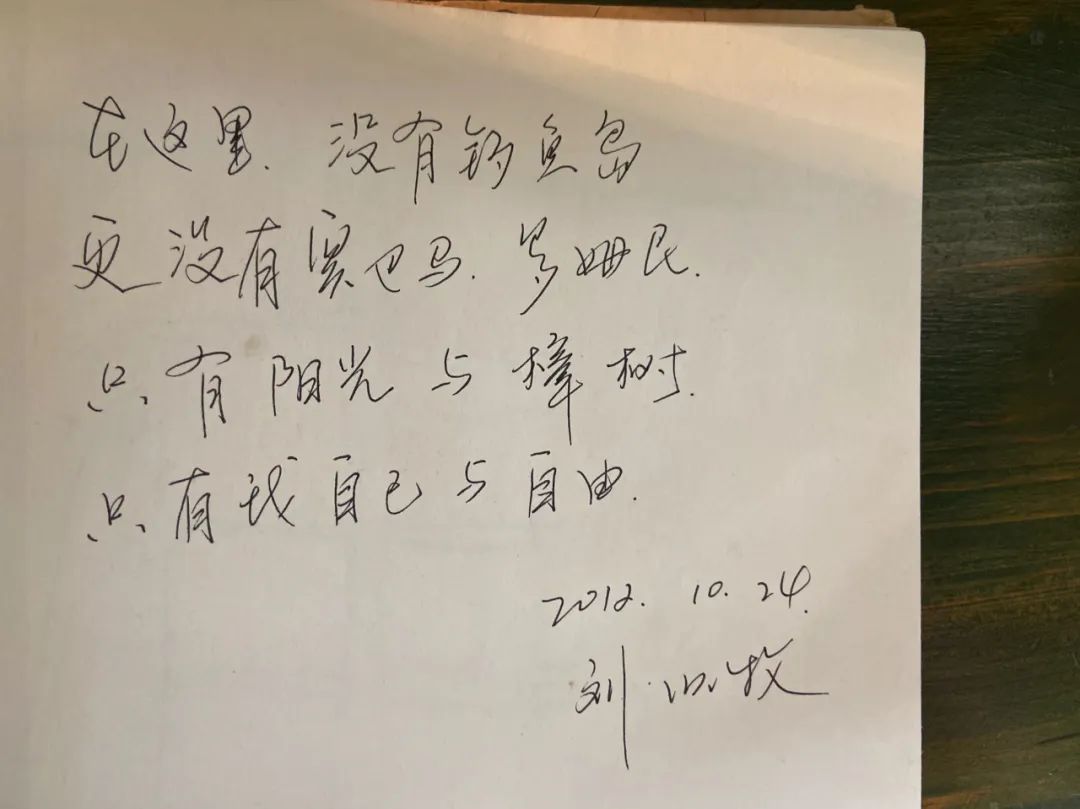 在这里. 没有钓鱼岛
更没有奥巴马. 罗姆尼.
只有阳光与樟树.
只有我自己与自由.
2012. 10. 24.
刘